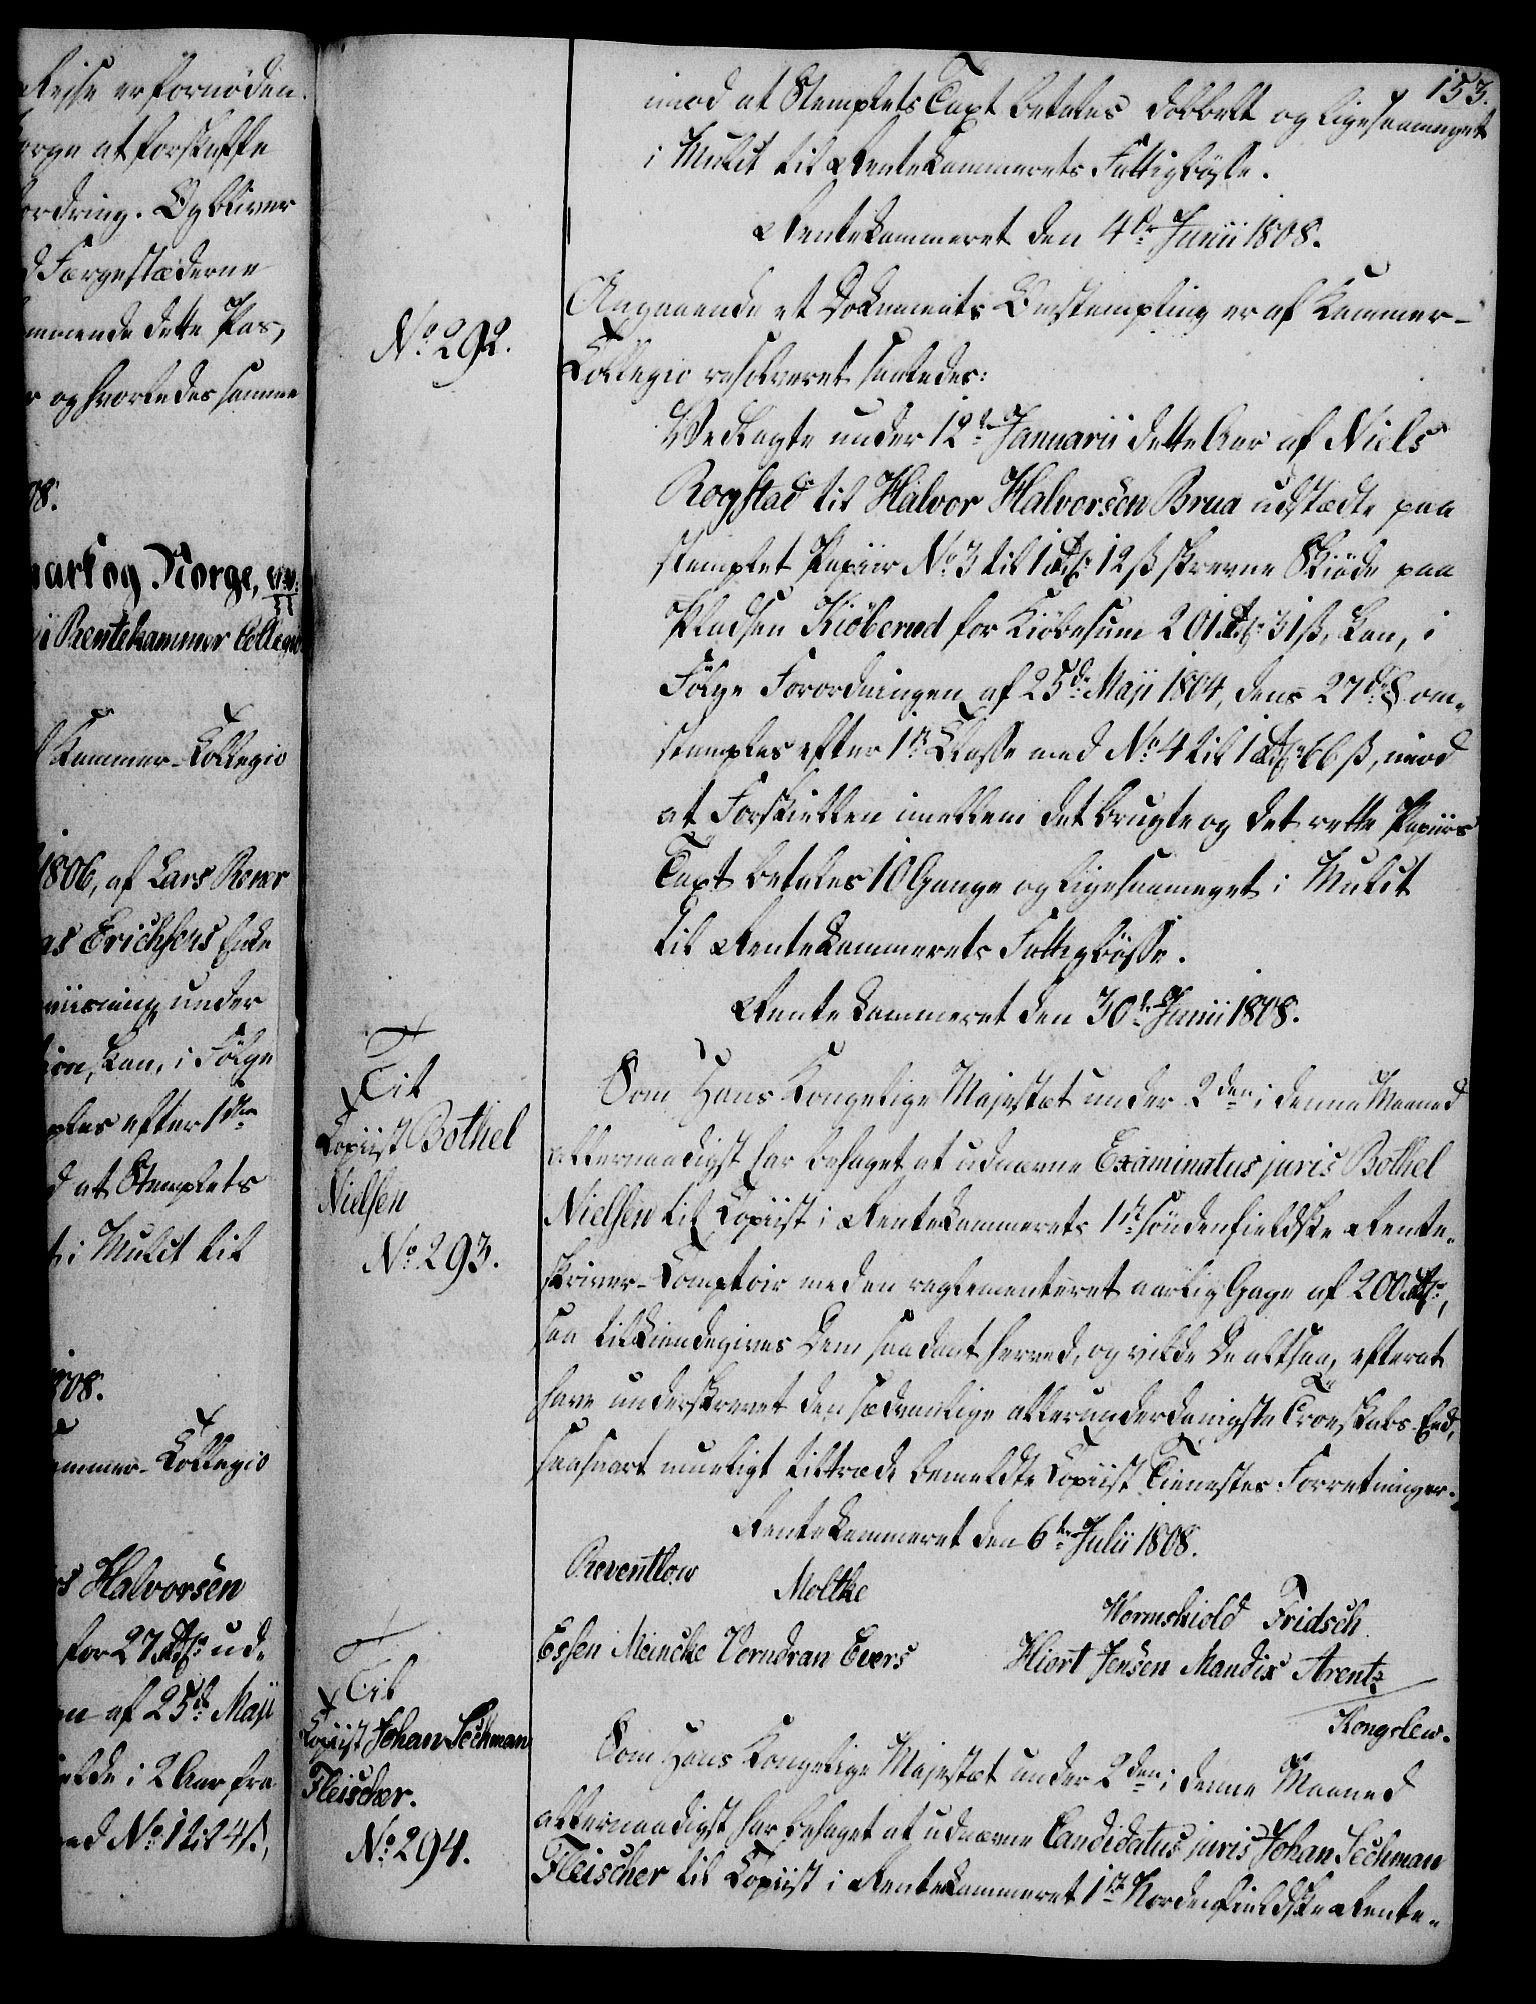 Reise er fornøden.
sørge at forskaffe
fordring. Og bliver
d Færgestæderne
mmende dette Pas,
r og hvorledes samme
08.
mark og Norge, &c. &c.
ii Rentekammer Collegio
f Kammer-Collegio
1806, af Lars Roner
as Erichsens Enke
under
tion, kan, i Følge
mples efter 1ste
d at Stemplets
t i Mulct til
808.
ammer-Collegio
rs Halvorsen
for 27 Rdlr ud-
en af 25de Maji
i 2 Aar fra
med No 1 til 24 ß,
153.
imod at Stemplets Taxt betales dobbelt og ligesaameget
i Mulct til Rentekammerets Fattigbøsse.
Rentekammeret den 4de Junii 1808.
No 292.
Angaaende et Dokuments Omstempling er af Kammer-
Collegio resolveret saaledes:
Vedlagte under 12te Januarii dette Aar af Niels
Rogstad til Halvor Halvorsen Brua udstædte paa
stemplet Papiir No 3 til 1 Rdlr 12 ß skrevne Skiøde paa
Pladsen Kiöberud for Kiøbesum 201 Rdlr 31 ß, kan, i
Følge Forordningen af 25de Maji 1804, dens 27de §. om-
stemples efter 1ste Classe med No 4 til 1 Rdlr 66 ß, imod
at Forskiellen imellem det brugte og det rette Papiirs
Taxt betales 10 Gange og ligesaameget i Mulct
til Rentekammerets Fattigbøsse.
Rentekammeret den 30te Junii 1808.
Til
Copiist Bothel
Nielsen
No 293.
Som Hans Kongelige Majestæt under 2den i denne Maaned
allernaadigst har behaget at udnævne Examinatus juris Bothel
Nielsen til Copiist i Rentekammerets 1ste søndenfieldske Rente-
skriver-Comptoir med en reglementeret aarlig Gage af 200 Rdlr,
saa tilkiendegives Dem saadant herved, og vilde De altsaa, efter at
have underskrevet den sædvanlige allerunderdanigste Troeskabs-Eed,
saasnart mueligt tiltræde bemeldte Copiist Tienestes Forretninger.
Rentekammeret den 6te Julii 1808.
Reventlow Moltke
Wormskiold Fridsch
Essen Meincke Vorndran Evers Hiort Jensen Mandix Arentz
Kongslew.
Til
Copiist Johan Sechman
Fleischer.
No 294.
Som Hans Kongelige Majestæt under 2den i denne Maaned
allernaadigst har behaget at udnævne Candidatus juris Johan Sechman
Fleischer til Copiist i Rentekammeret 1ste Nordenfieldske Rente-